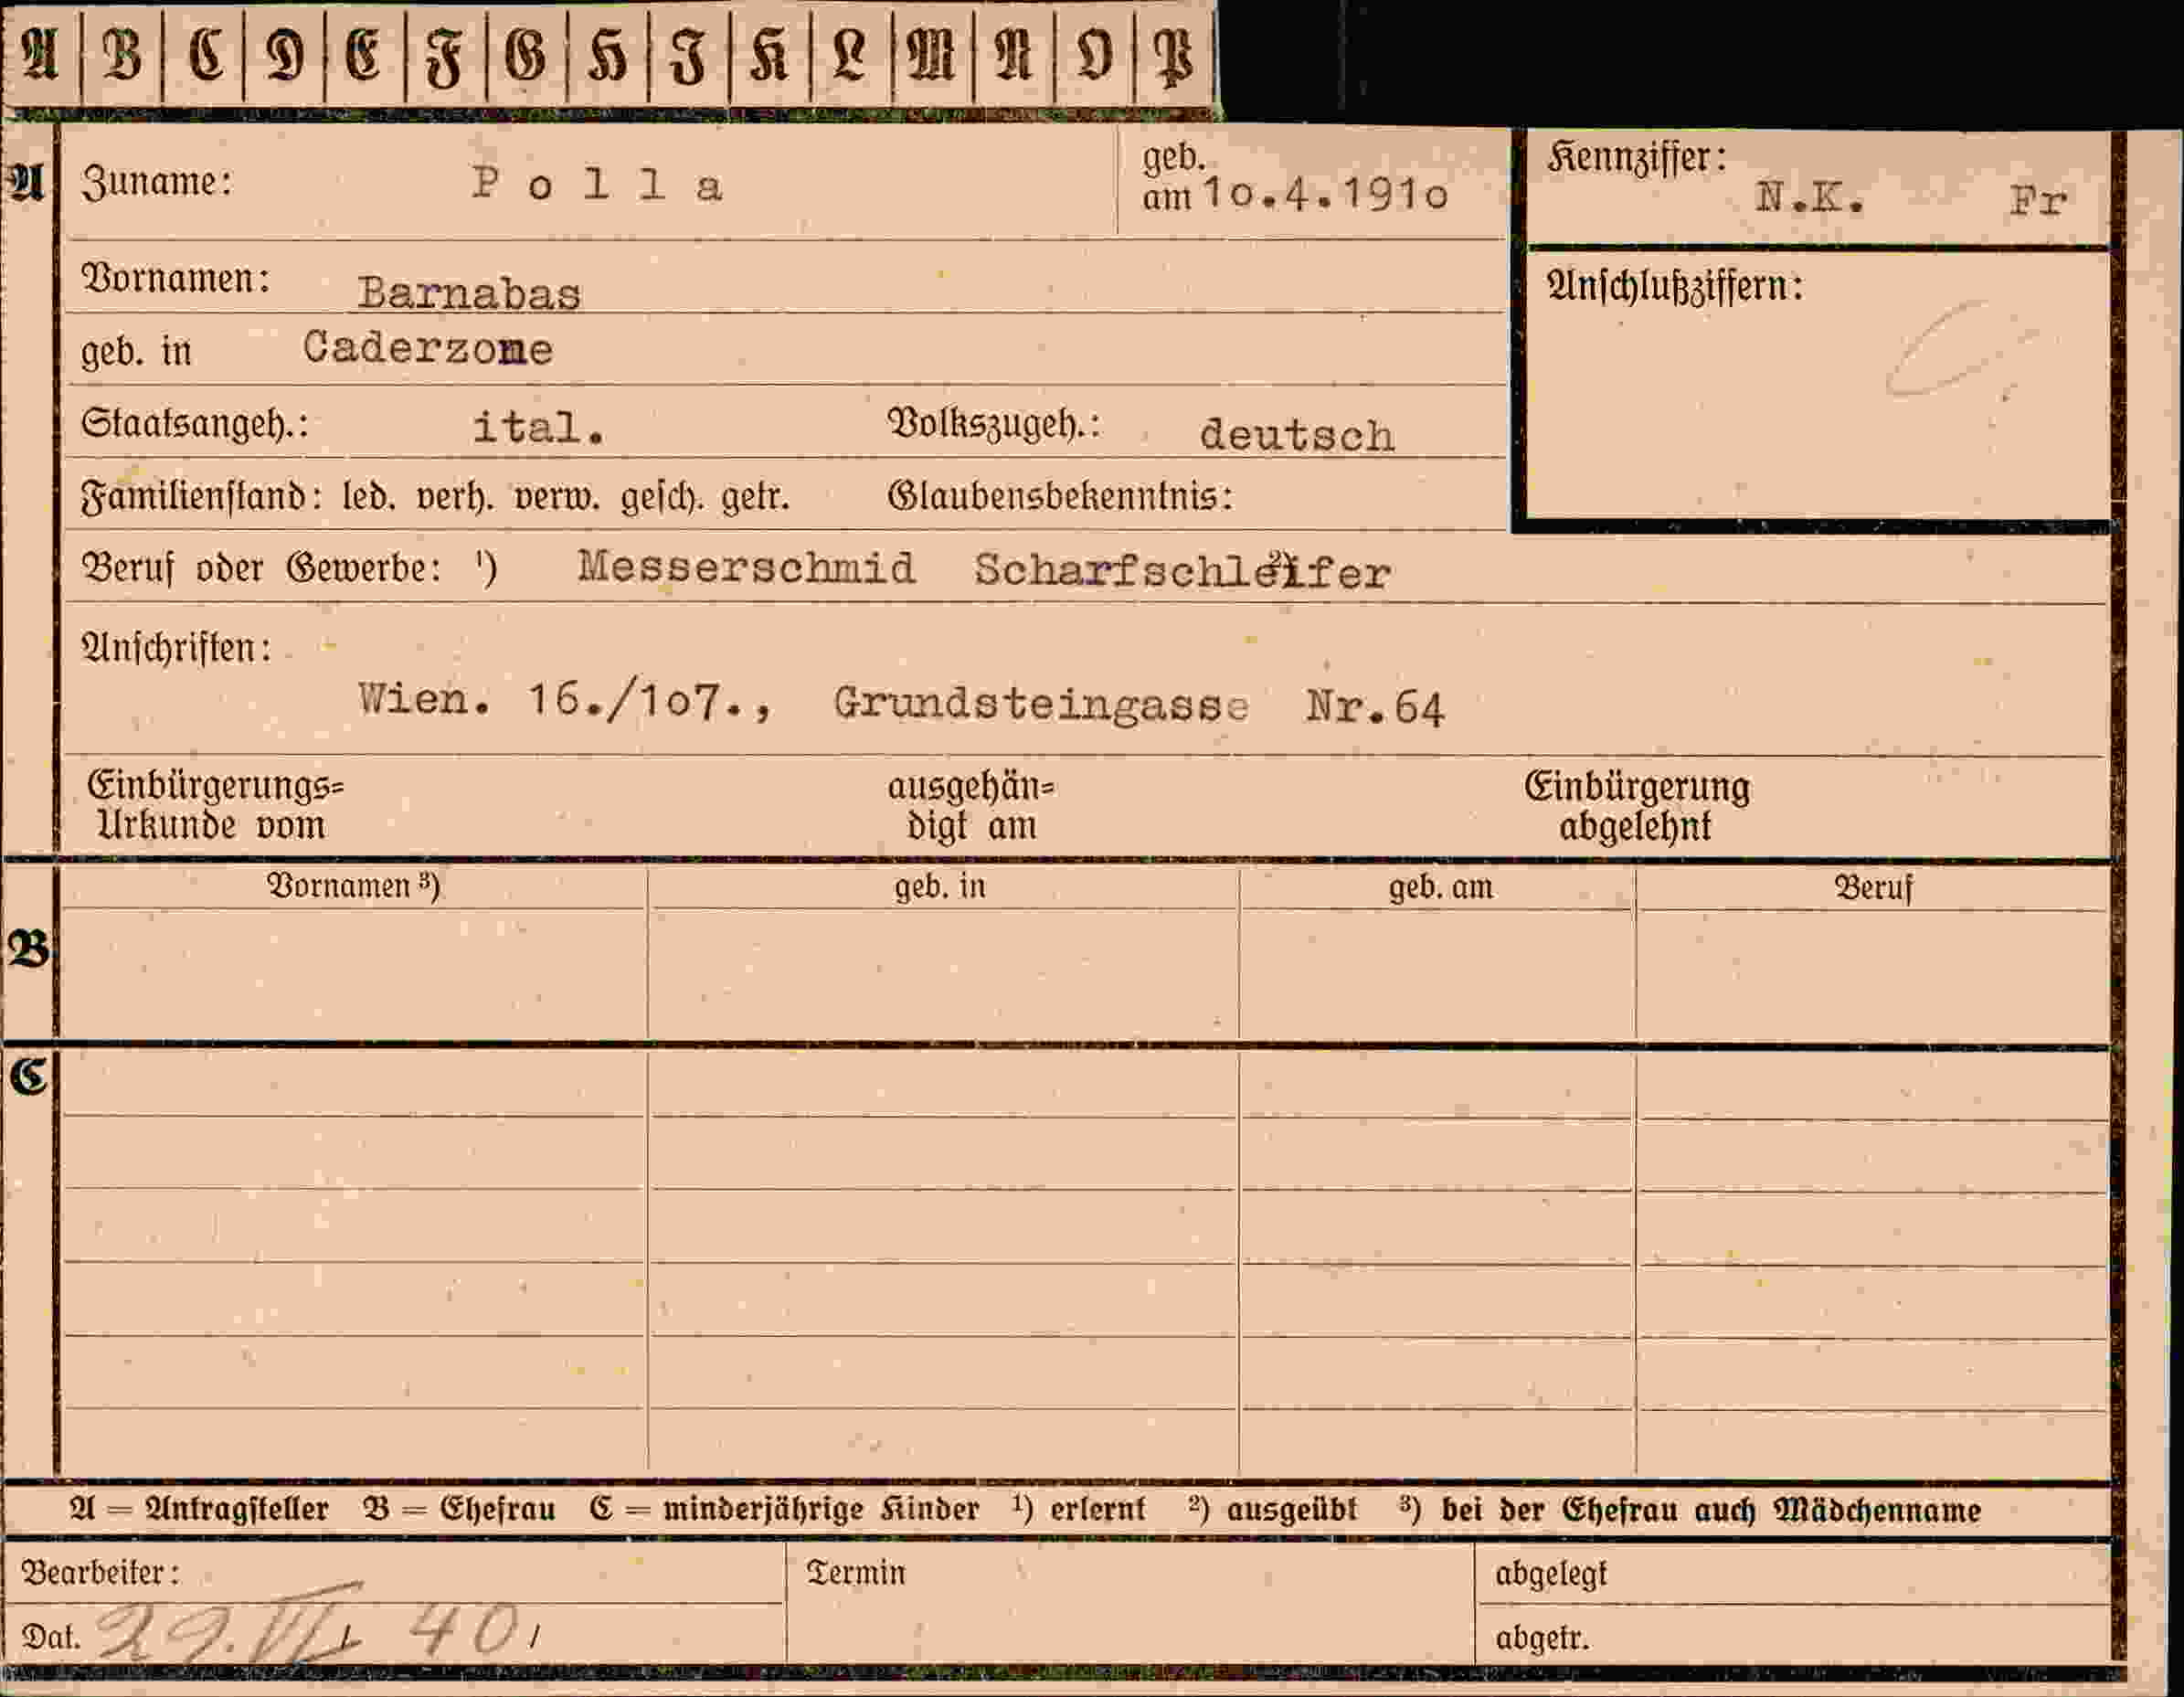 A B C D E F G H I K L M N O P
A Zuname: Polla geb. am 1o.4.191o Kennziffer: N.K. Fr
Vornamen: Barnabas Anschlußziffern:
geb. in Caderzone
Staatsangeh.: ital. Volkszugeh.: deutsch
Familienstand: led. verh. verw. gesch. getr. Glaubensbekenntnis:
Beruf oder Gewerbe: ¹) Messerschmid ²) Scharfschleifer
Anschriften:
Wien. 16./1o7., Grundsteingasse Nr.64
Einbürgerungs= ausgehän= Einbürgerung
Urkunde vom digt am abgelehnt
Vornamen ³) geb. in geb. am Beruf
B
C
A = Antragsteller B = Ehefrau C = minderjährige Kinder ¹) erlernt ²) ausgeübt ³) bei der Ehefrau auch Mädchenname
Bearbeiter: Termin abgelegt
Dat. 29. 40 abgetr.